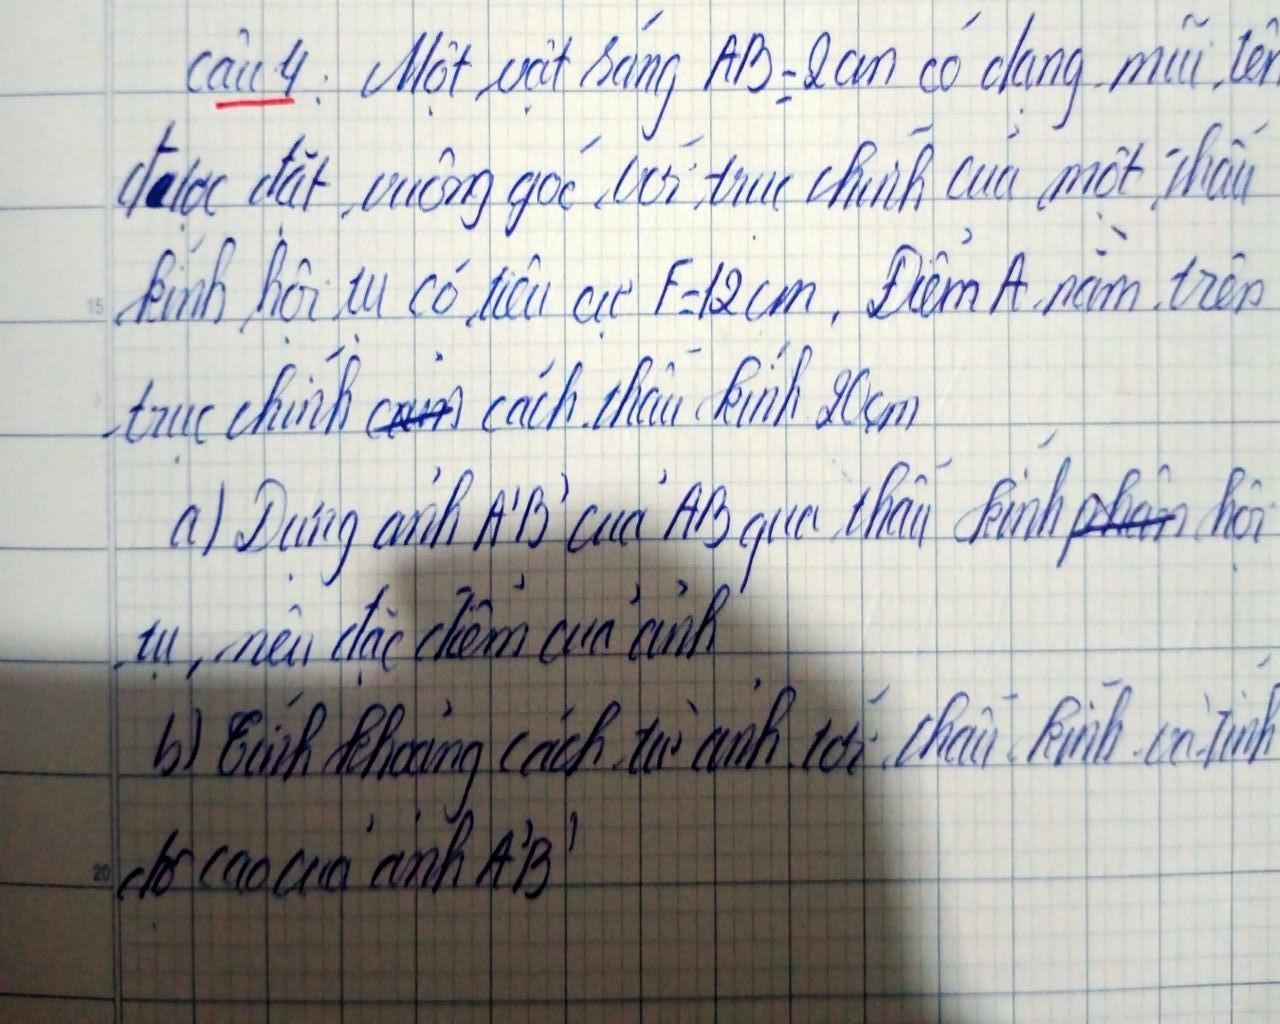 Câu 4: Một vật sáng AB = 2cm có dạng mũi tên
được đặt vuông góc với trục chính của một thấu
15 kính hội tụ có tiêu cự F=12cm. Điểm A nằm trên
trục chính cách thấu kính 20cm
a) Dựng ảnh A'B' của AB qua thấu kính phân hội
tụ, nêu đặc điểm của ảnh
b) Tính khoảng cách từ ảnh tới thấu kính và tính
20 độ cao của ảnh A'B'